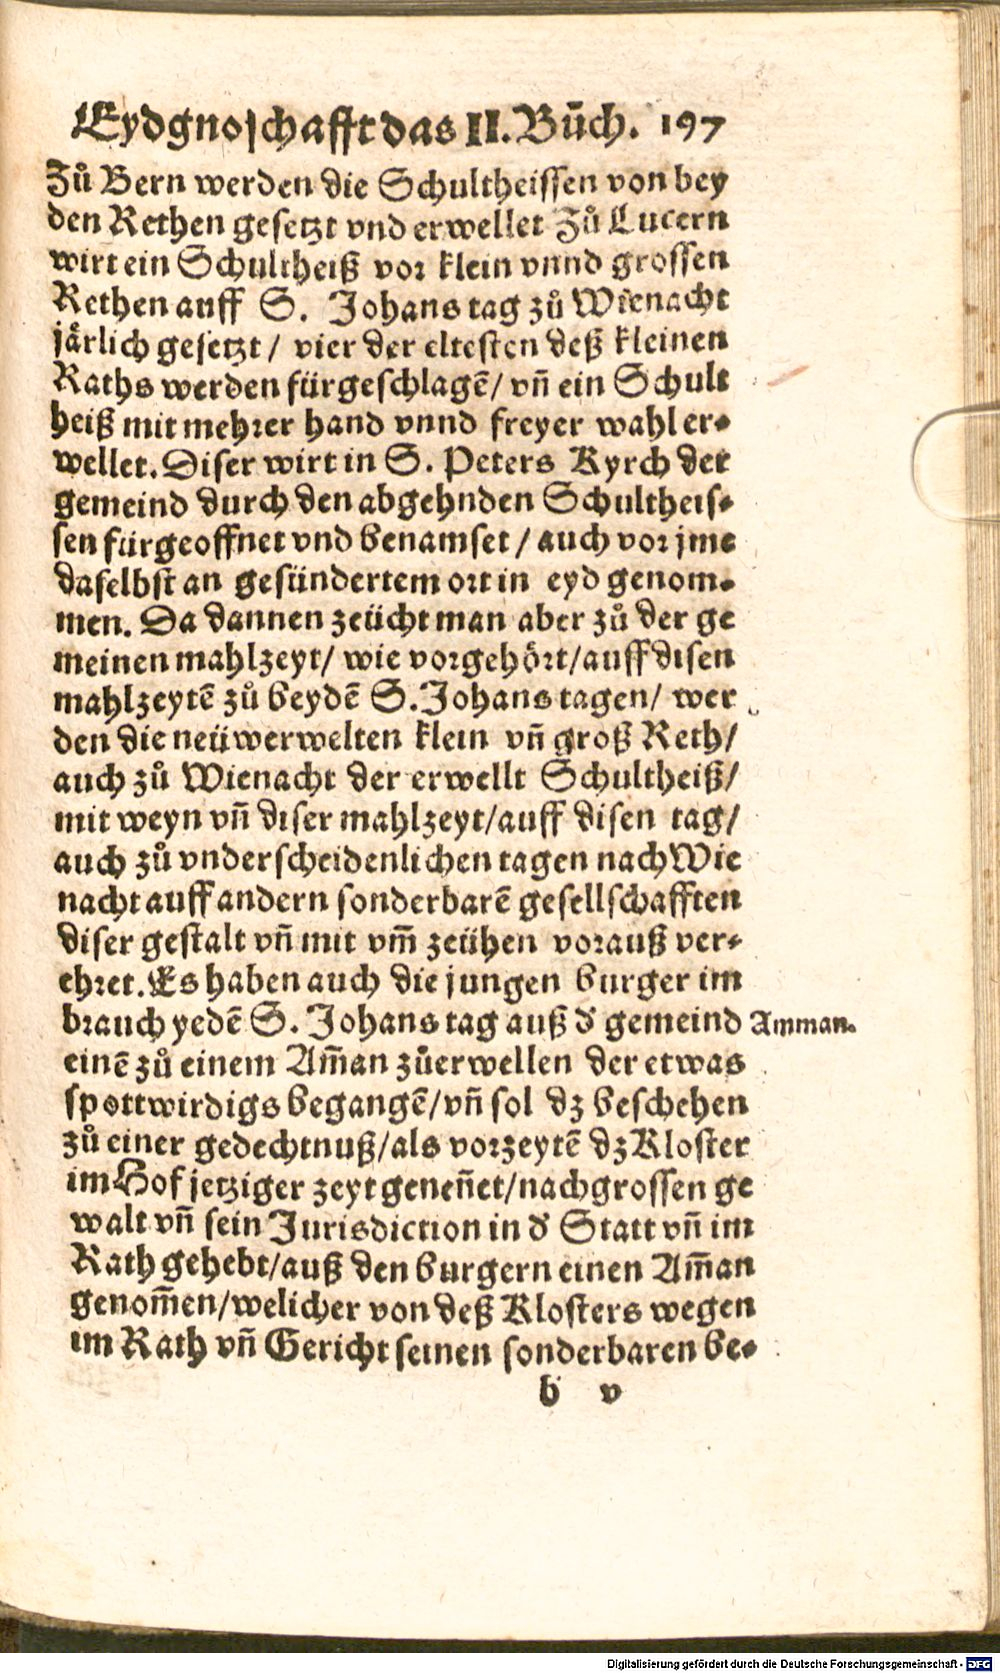 Eydgnoschafft das II. Bůch. 197
Zů Bern werden die Schultheissen von bey
den Rethen gesetzt vnd erwellet Zů Lucern
wirt ein Schultheiß vor klein vnnd grossen
Rethen auff S. Johans tag zů Wienacht
järlich gesetzt / vier der eltesten deß kleinen
Raths werden fürgeschlagē / vñ ein Schult
heiß mit mehrer hand vnnd freyer wahl er-
wellet. Diser wirt in S. Peters Kyrch der
gemeind durch den abgehnden Schultheis-
sen fürgeoffnet vnd benamset / auch vor jme
daselbst an gesündertem ort in eyd genom-
men. Da dannen zeücht man aber zů der ge
meinen mahlzeyt / wie vorgehört / auff disen
mahlzeytē zů beydē S. Johans tagen / wer
den die neüwerwelten klein vñ groß Reth /
auch zů Wienacht der erwellt Schultheiß /
mit weyn vñ diser mahlzeyt / auff disen tag /
auch zů vnderscheidenlichen tagen nach Wie
nacht auff andern sonderbarē gesellschafften
diser gestalt vñ mit vm̃ zeühen vorauß ver-
ehret. Es haben auch die jungen burger im
brauch yedē S. Johans tag auß d' gemeind
Amman.
einē zů einem Am̃an zůerwellen der etwas
spottwirdigs begangē / vñ sol dz beschehen
zů einer gedechtnuß / als vorzeytē dz Kloster
im Hof jetziger zeyt geneñet / nach grossen ge
walt vñ sein Jurisdiction in d' Statt vñ im
Rath gehebt / auß den burgern einen Am̃an
genom̃en / welicher von deß Klosters wegen
im Rath vñ Gericht seinen sonderbaren be-
b v
Digitalisierung gefördert durch die Deutsche Forschungsgemeinschaft - DFG